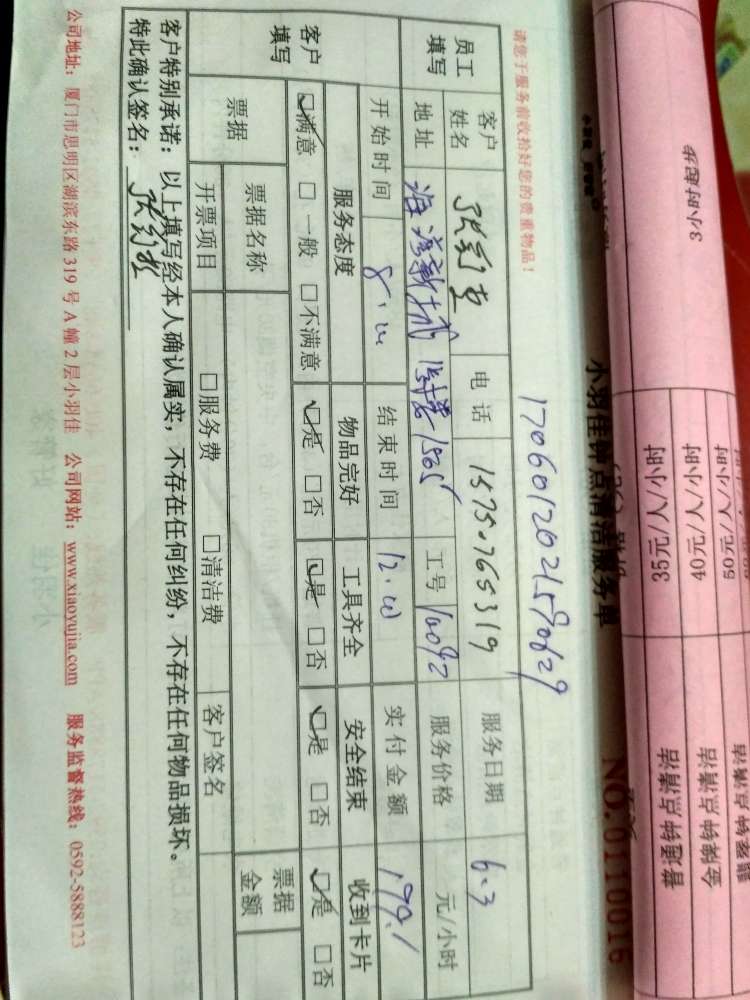 3小时起步
50元/人/小时
40元/人/小时 金梯钟点清洁
35元/人/小时 普通钟点清洁
小羽佳钟点清洁服务单 NO.0110016
请您于服务前收拾好您的贵重物品！
员工填写 客户姓名 电话 15750765319 服务日期 6.3
地址 工号 服务价格 元/小时
客户填写 开始时间 8:00 结束时间 12:00 实付金额 199.1
服务态度 物品完好 工具齐全 安全结束 收到卡片
☑满意 □一般 □不满意 ☑是 □否 ☑是 □否 ☑是 □否 ☑是 □否
票据 票据名称 票据金额
开票项目 □服务费 □清洁费 客户签名
客户特别承诺：以上填写经本人确认属实，不存在任何纠纷，不存在任何物品损坏。
特此确认签名：
公司地址：厦门市思明区湖滨东路319号A幢2层小羽佳 公司网站：www.xiaoyujia.com 服务监督热线：0592-5888123